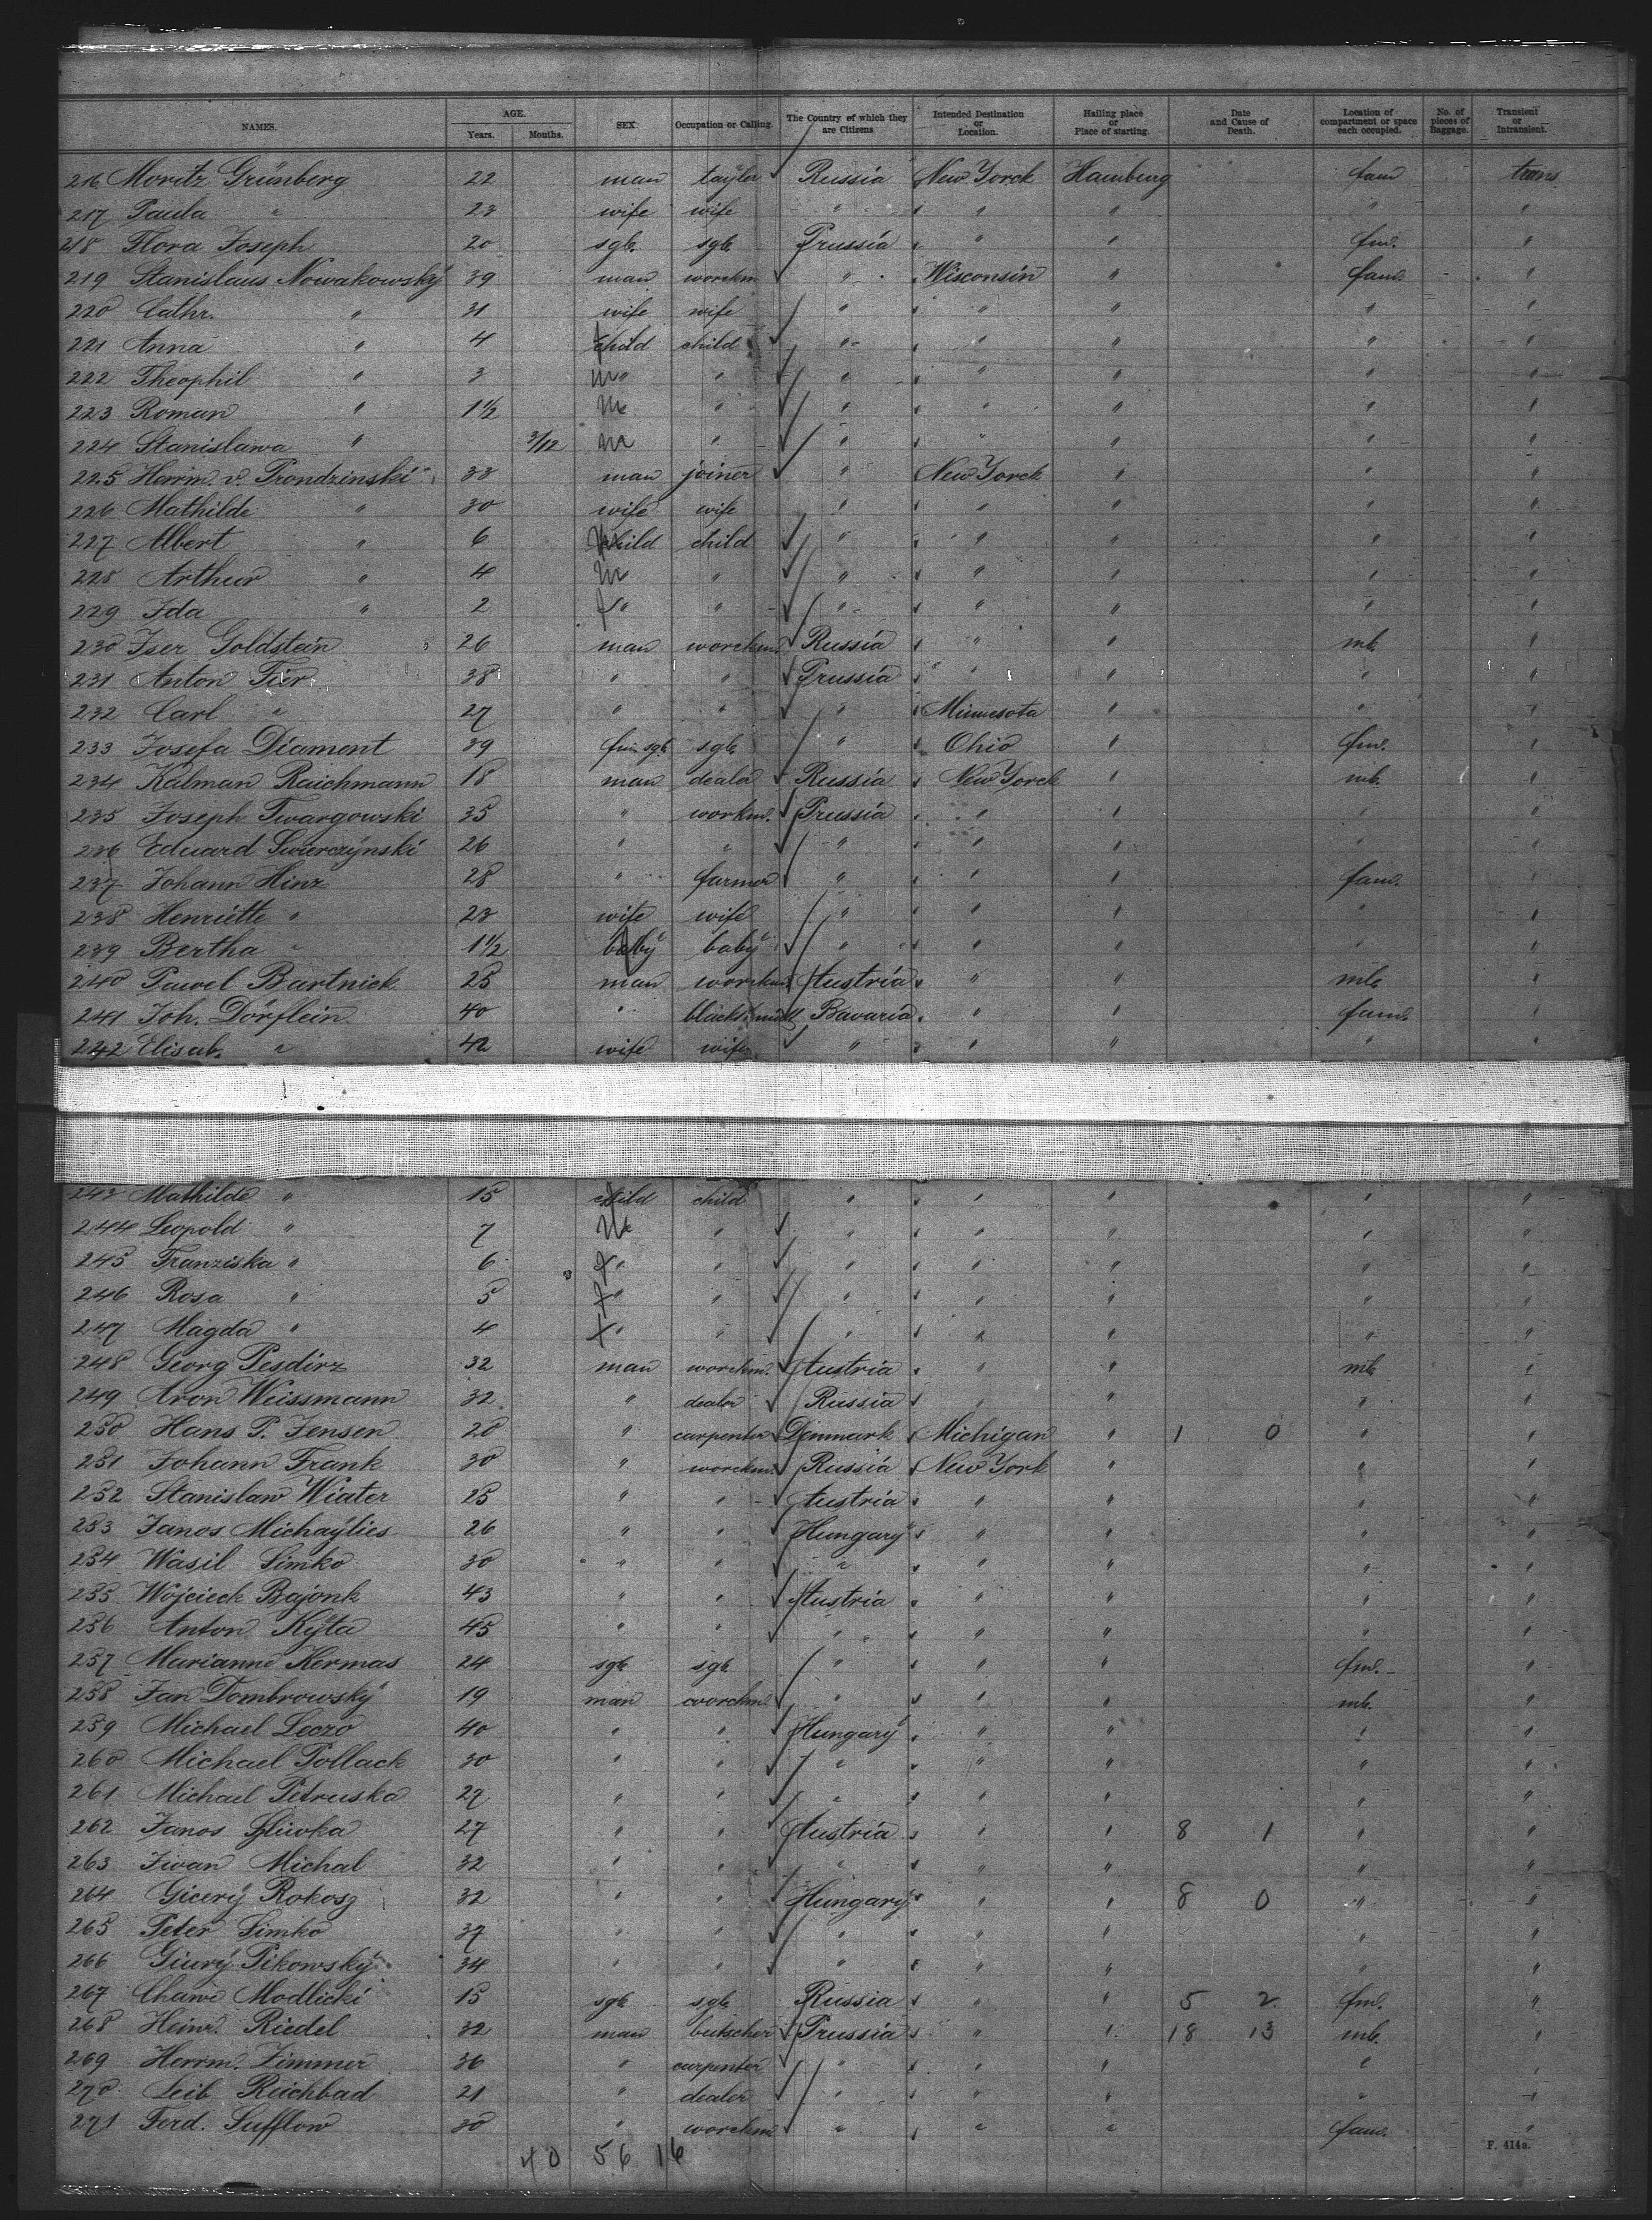 NAMES. AGE. Years. Months. SEX. Occupation or Calling. The Country of which they are Citizens Intended Destination or Location. Hailing place or Place of starting. Date and Cause of Death. Location of compartment or space each occupied. No. of pieces of Baggage. Transient or Intransient.
216 Moritz Grünberg 22 man tayler Russia New Yorck Hamburg fam trans
217 Paula " 23 wife wife " " " " "
218 Flora Joseph 20 sgle sgle Prussia " " fm. "
219 Stanislaus Nowakowsky 39 man worckm " Wisconsin " fam. "
220 Cathr. " 31 wife wife " " " " "
221 Anna " 4 child child " " " " "
222 Theophil " 3 m " " " " " " "
223 Roman " 1½ m " " " " " "
224 Stanislawa " 3/12 m " " " " " "
225 Herrm. v. Prondzinski 33 man joiner " New Yorck " " "
226 Mathilde " 30 wife wife " " " " "
227 Albert " 6 child child " " " " "
228 Arthur " 4 m " " " " " "
229 Ida " 2 f " " " " " " "
230 Iser Goldstein 26 man worckm. Russia " " mle "
231 Anton Tier 38 " " Prussia " " " "
232 Carl " 27 " " " Minnesota " " "
233 Josefa Diament 39 fm. sgle sgle " Ohio " fm. "
234 Kalman Raichmann 18 man dealer Russia New Yorck " mle. "
235 Joseph Twargowski 35 " workm. Prussia " " " "
236 Eduard Swierczynski 26 " " " " " " "
237 Johann Hinz 28 " farmer " " " fam. "
238 Henriette " 23 wife wife " " " " "
239 Bertha " 1½ baby baby " " " " "
240 Pawel Bartnick 25 man worckm Austria " " mle "
241 Joh. Dörflein 40 " blacksmith Bavaria " " fam. "
242 Elisab. " 42 wife wife " " " " "
243 Mathilde " 15 child child " " " " "
244 Leopold " 7 m " " " " " "
245 Franziska " 6 f " " " " " " "
246 Rosa " 5 f " " " " " " "
247 Magda " 4 f " " " " " " "
248 Georg Pesdirz 32 man worckm. Austria " " mle "
249 Aron Weissmann 32 " dealer Russia " " " "
250 Hans P. Jensen 20 " carpenter Denmark Michigan " 1 0 " "
251 Johann Frank 30 " worckm. Russia New York " " "
252 Stanislaw Wiater 25 " " Austria " " " "
253 Janos Michaylics 26 " " Hungary " " " "
254 Wasil Simko 30 " " " " " " "
255 Wojcieck Bajonk 43 " " Austria " " " "
256 Anton Kyta 45 " " " " " " "
257 Marianne Kermas 24 sgle sgle " " " fm. "
258 Jan Dombrowsky 19 man worckm. " " " mle. "
259 Michael Leczo 40 " " Hungary " " " "
260 Michael Pollack 30 " " " " " " "
261 Michael Petruska 29 " " " " " " "
262 Janos 27 " " Austria " " 8 1 " "
263 Iwan Michal 32 " " " " " " "
264 Rokosz 32 " " Hungary " " 8 0 " "
265 Peter Simko 37 " " " " " " "
266 Giury Pikowsky 34 " " " " " " "
267 Modlicki 15 sgle sgle Russia " " 5 2 fm. "
268 Heinr. Riedel 32 man butscher Prussia " " 18 13 mle. "
269 Herrm. Zimmer 36 " carpenter " " " " "
270 Leib Reichbad 21 " dealer " " " " "
271 Ferd. Sufflow 30 " worckm " " " fam. "
40 56 16
F. 414a.